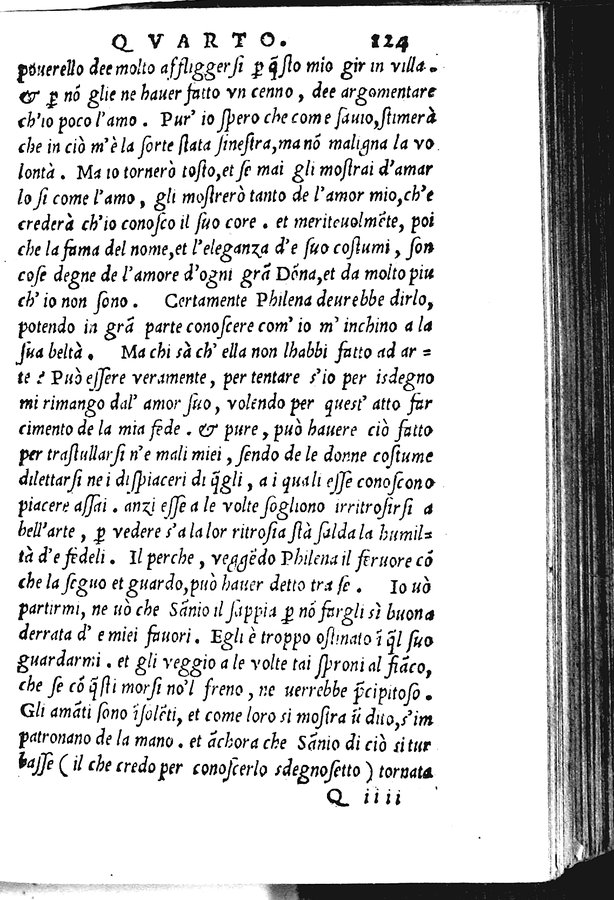 QVARTO. 124
pouerello dee molto affliggerſi ꝑ q̃ſto mio gir in villa.
& ꝑ nõ glie ne hauer fatto vn cenno, dee argomentare
ch'io poco l'amo. Pur' io ſpero che come ſauio, ſtimerà
che in ciò m'è la ſorte ſtata ſineſtra, ma nõ maligna la vo
lontà. Ma io tornerò toſto, et ſe mai gli moſtrai d'amar
lo ſi come l'amo, gli moſtrerò tanto de l'amor mio, ch'e
crederà ch'io conoſco il ſuo core. et meriteuolmẽte, poi
che la fama del nome, et l'eleganza d'e ſuo coſtumi, ſon
coſe degne de l'amore d'ogni grã Dõna, et da molto piu
ch'io non ſono. Certamente Philena deurebbe dirlo,
potendo in grã parte conoſcere com' io m'inchino a la
ſua beltà. Ma chi sà ch' ella non lhabbi fatto ad ar=
te? Può eſſere veramente, per tentare s'io per isdegno
mi rimango dal' amor ſuo, volendo per queſt' atto far
cimento de la mia fede. & pure, può hauere ciò fatto
per traſtullarſi n'e mali miei, ſendo de le donne coſtume
dilettarſi ne i diſpiaceri di q̃gli, a i quali eſſe conoſcono
piacere aſſai. anzi eſſe a le volte ſogliono irritroſirſi a
bell'arte, ꝑ vedere s'a la lor ritroſia ſtà ſalda la humil=
tà d'e fedeli. Il perche, veggẽdo Philena il feruore cõ
che la ſeguo et guardo, può hauer detto tra ſe. Io uò
partirmi, ne uò che Sãnio il ſappia ꝑ nõ fargli sì buona
derrata d' e miei fauori. Egli è troppo oſtinato ĩ q̃l ſuo
guardarmi. et gli veggio a le volte tai ſproni al fiãco,
che ſe cõ q̃ſti morſi no'l freno, ne uerrebbe p̃cipitoſo.
Gli amãti ſono ĩſolẽti, et come loro si moſtra ũ dito, s'im
patronano de la mano. et ãchora che Sãnio di ciò si tur
baſſe (il che credo per conoſcerlo sdegnoſetto) tornata
Q iiii